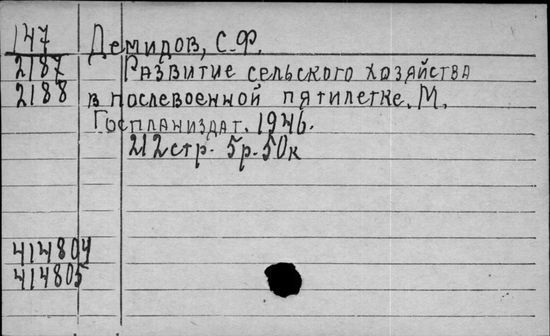 147 Демидов, С.Ф.
2187 Развитие сельского хозяйства
2188 в послевоенной пятилетке. М.
Госпланиздат. 1946.
212 стр. 5р. 50к
414804
414805